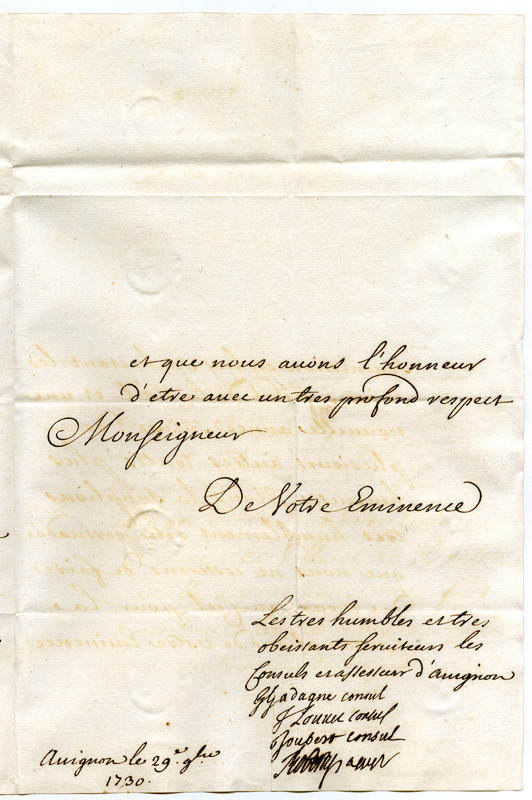 et que nous auons l'honneur
d'etre auec un tres profond respect
Monseigneur
De Votre Eminence
Les tres humbles et tres
obeissants seruiteurs les
Consuls et assesseur d'auignon
consul
consul
Joubert consul
Auignon le 29.e 9bre
1730.